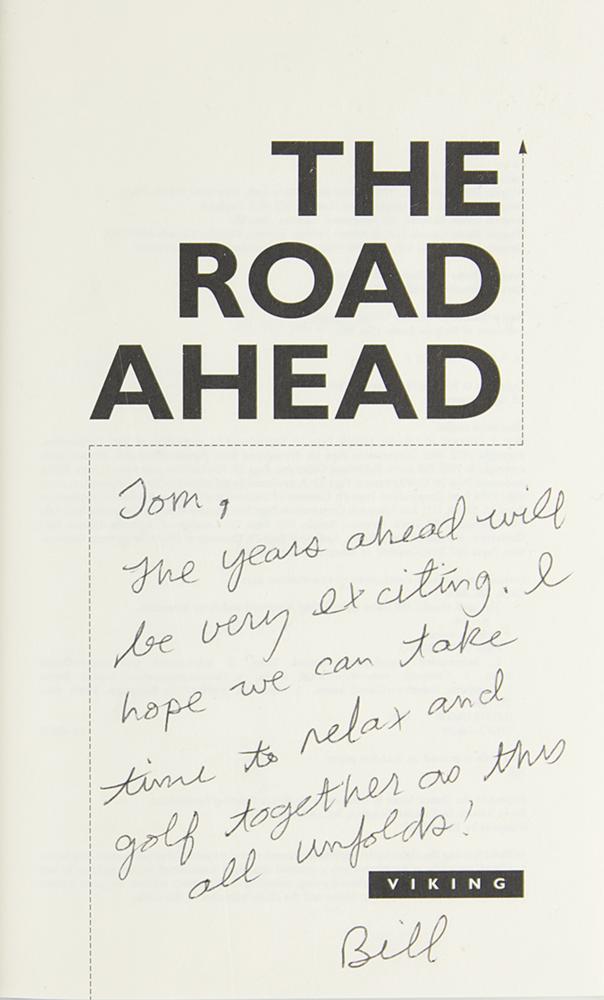 THE
ROAD
AHEAD
Tom,
The years ahead will
be very exciting. I
hope we can take
time to relax and
golf together as this
all unfolds!
VIKING
Bill